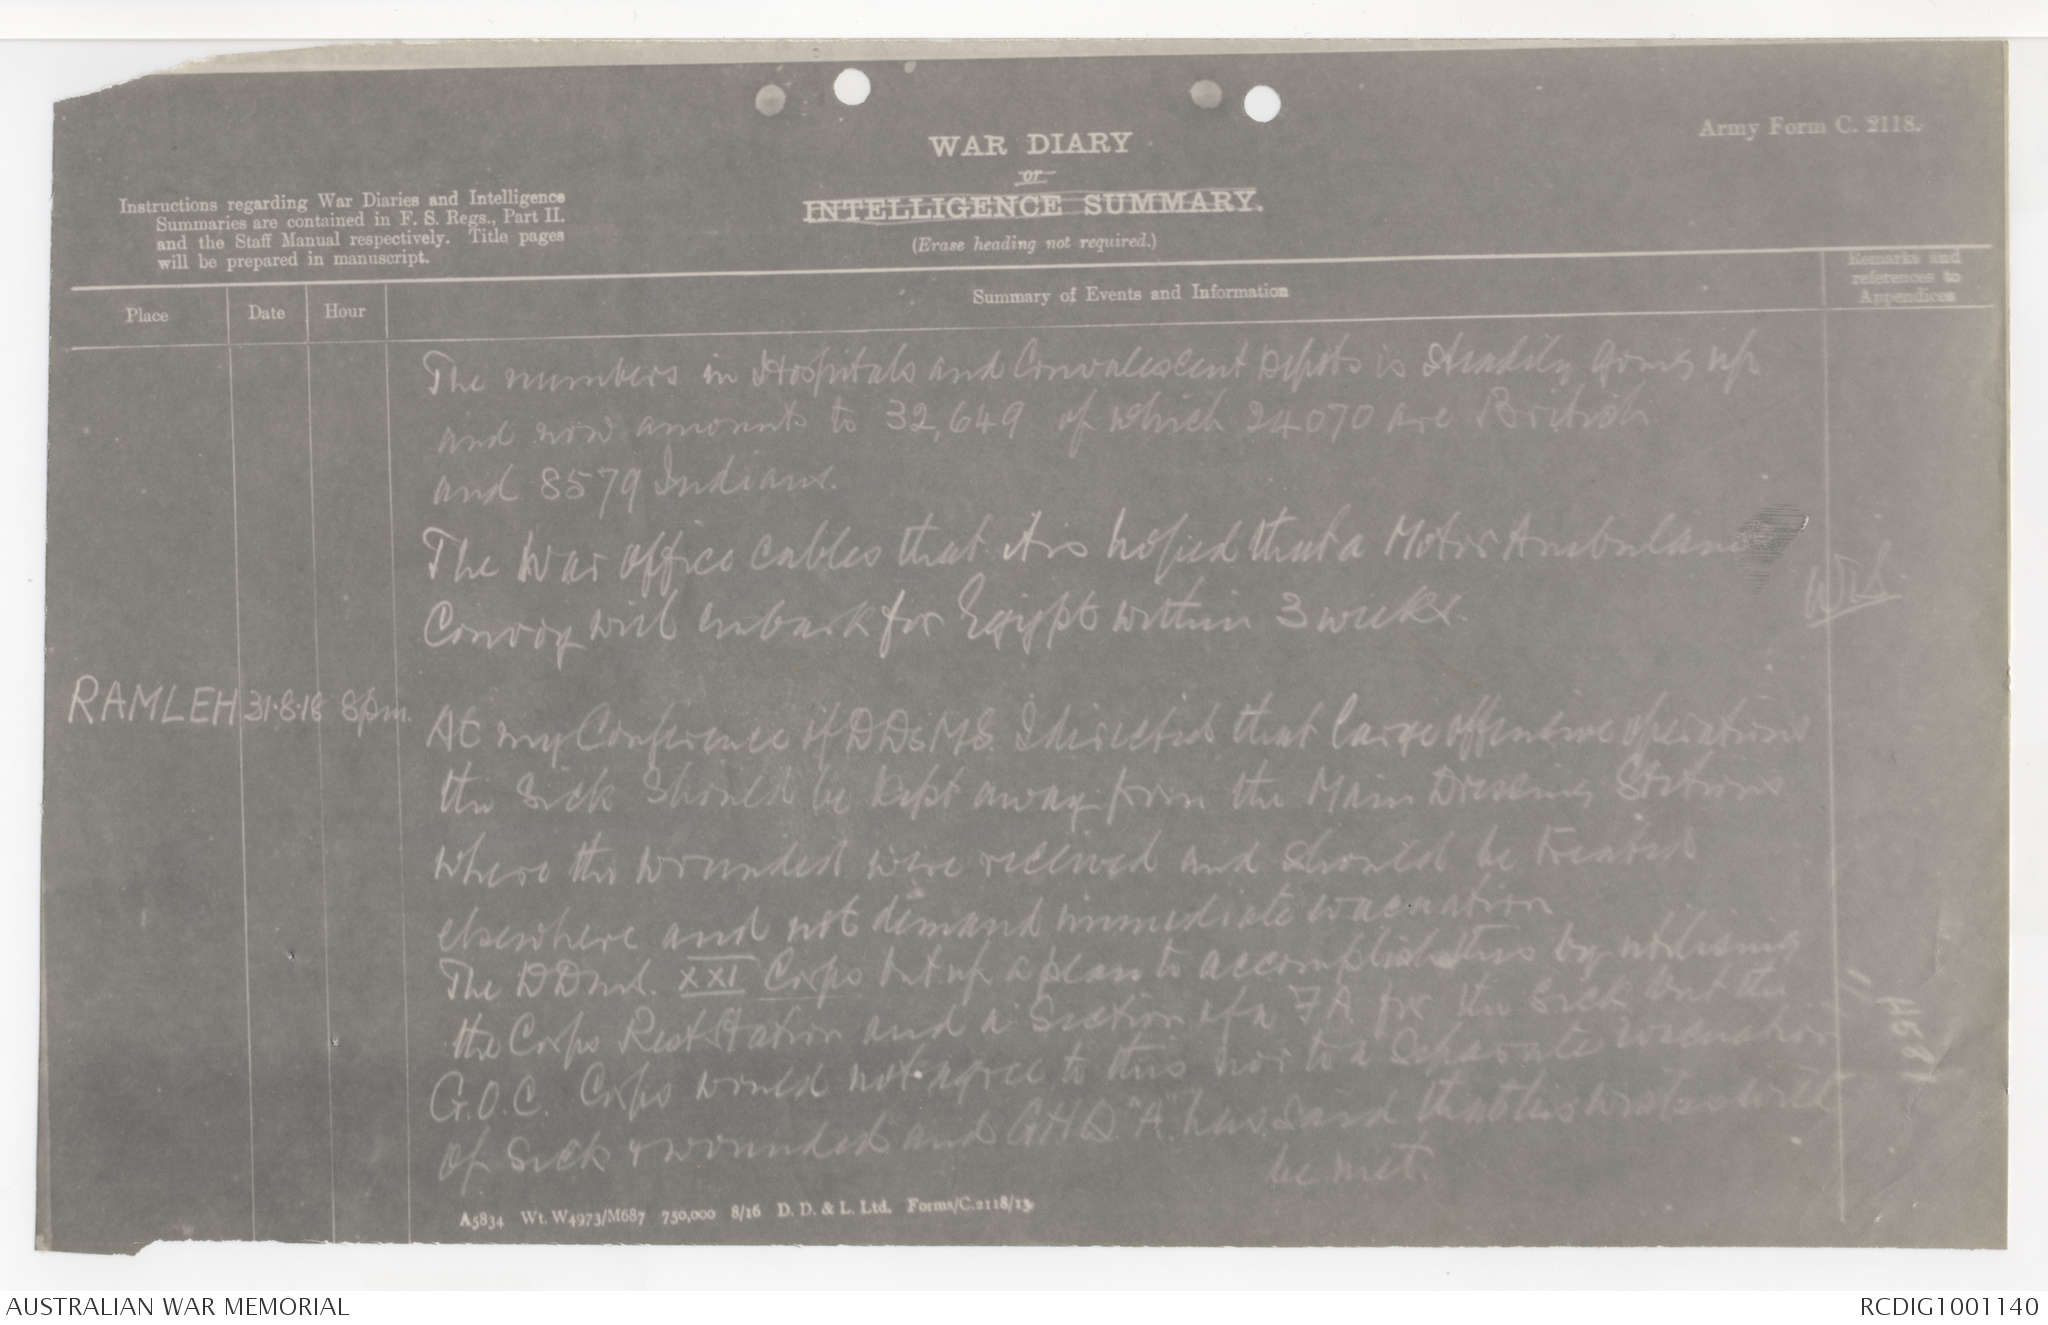 Army Form C. 2118.
WAR DIARY
or
INTELLIGENCE SUMMARY.
(Erase heading not required.)
Instructions regarding War Diaries and Intelligence
Summaries are contained in F. S. Regs., Part II.
and the Staff Manual respectively. Title pages
will be prepared in manuscript.
Place
Date
Hour
Summary of Events and Information
Remarks and
references to
Appendices
The numbers in Hospitals and Convalescent Depôts is steadily going up
and now amounts to 32,649 of which 24070 are British
and 8579 Indians.
The War Office cables that it is hoped that a Motor Ambulance
Convoy will embark for Egypt within 3 weeks.
RAMLEH 31.8.18 8pm.
At my Conference of DDsMS. I directed that large offensive operations
the sick should be kept away from the Main Dressing Stations
where the wounded were received and should be treated
elsewhere and not demand immediate evacuation
The DDMS. XXI Corps put up a plan to accomplish this by utilising
the Corps Rest Station and a Section of a FA for the sick but the
G.O.C. Corps would not agree to this nor to a separate evacuation
of sick & wounded and GHQ. "A" has said that his wishes will
be met.
A5834 Wt. W4973/M687 750,000 8/16 D. D. & L. Ltd. Forms/C.2118/13.
AUSTRALIAN WAR MEMORIAL
RCDIG1001140